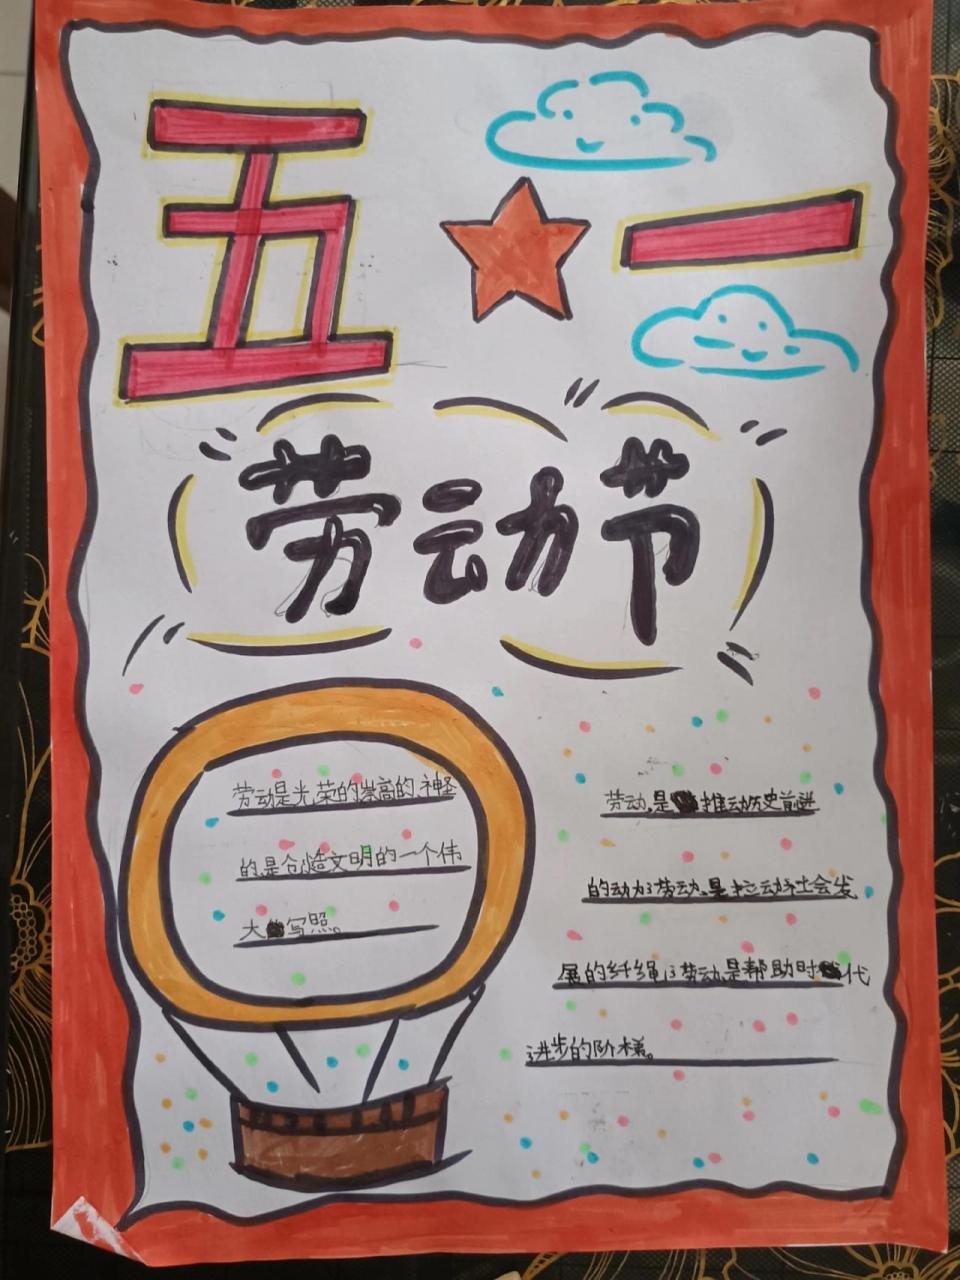 五一
劳动节
劳动是光荣的崇高的神圣
的是创造文明的一个伟
大写照。
劳动是推动历史前进
的动力;劳动是拉动社会发
展的纤绳;劳动是帮助时代
进步的阶梯。